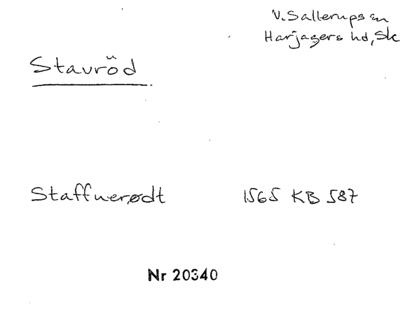 V. Sallerups sn
Harjagers hd, Sk
Stavröd
Staffuerødt 1565 KB 587
Nr 20340